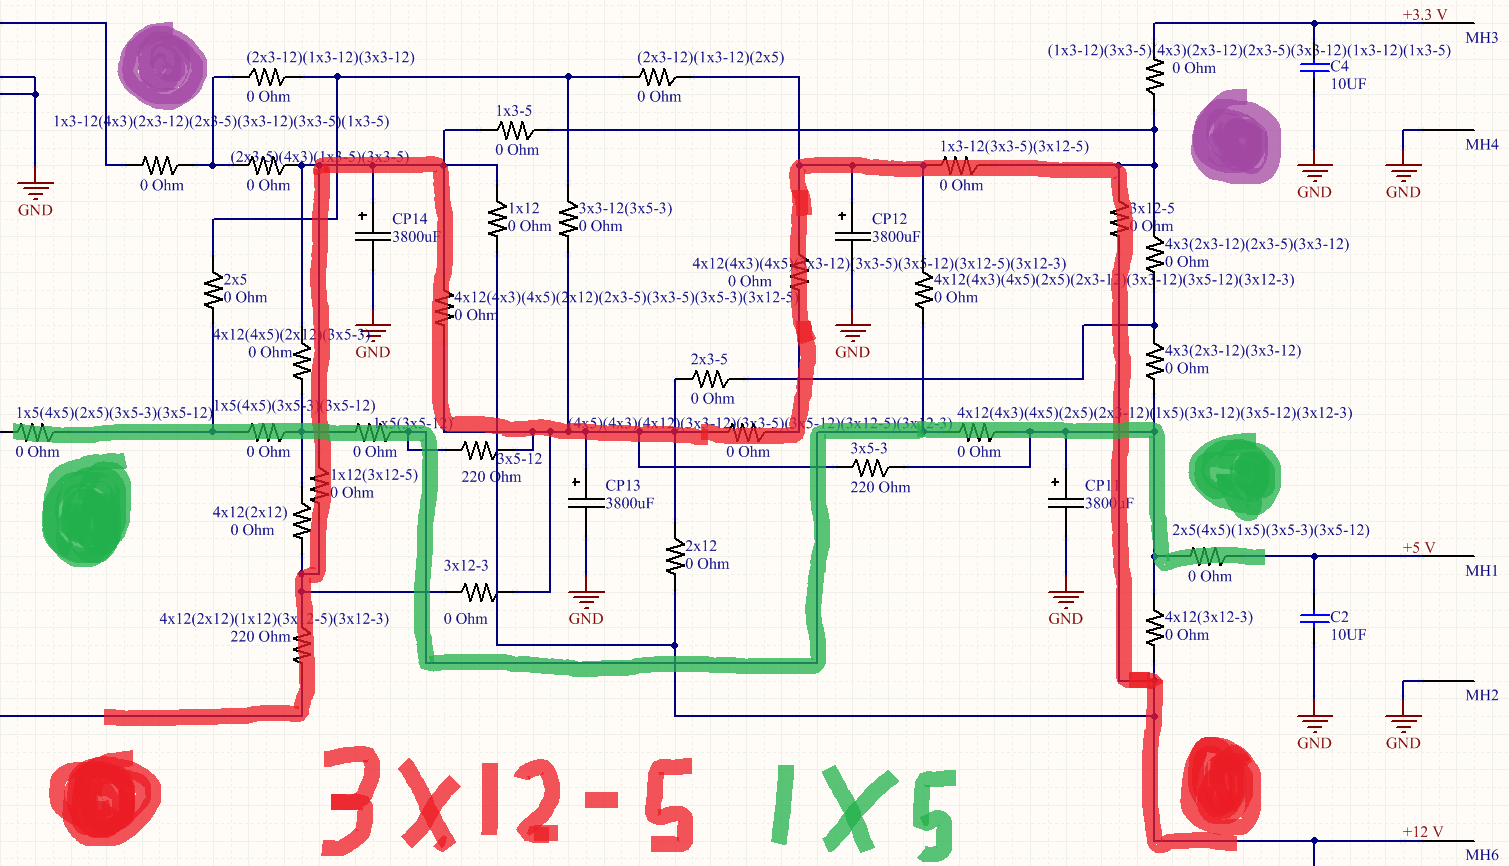 +3.3 V
MH3
(2x3-12)(1x3-12)(3x3-12)
0 Ohm
(2x3-12)(1x3-12)(2x5)
0 Ohm
(1x3-12)(3x3-5)(4x3)(2x3-12)(2x3-5)(3x3-12)(1x3-12)(1x3-5)
0 Ohm
C4
10UF
1x3-5
0 Ohm
1x3-12(4x3)(2x3-12)(2x3-5)(3x3-12)(3x3-5)(1x3-5)
0 Ohm
(2x3-5)(4x3)(1x3-5)(3x3-5)
0 Ohm
1x3-12(3x3-5)(3x12-5)
0 Ohm
MH4
GND
GND
GND
CP14
3800uF
1x12
0 Ohm
3x3-12(3x5-3)
0 Ohm
CP12
3800uF
3x12-5
0 Ohm
4x3(2x3-12)(2x3-5)(3x3-12)
0 Ohm
2x5
0 Ohm
0 Ohm
4x12(4x3)(4x5)(2x5)(2x3-12)(3x3-12)(3x5-12)(3x12-3)
0 Ohm
4x12(4x3)(4x5)(2x12)(2x3-5)(3x3-5)(3x5-3)(3x12-5)
0 Ohm
4x12(4x5)(2x12)(3x5-3)
0 Ohm
GND
GND
2x3-5
0 Ohm
4x3(2x3-12)(3x3-12)
0 Ohm
1x5(4x5)(2x5)(3x5-3)(3x5-12)
0 Ohm
1x5(4x5)(3x5-3)(3x5-12)
0 Ohm
1x5(3x5-12)
0 Ohm
(4x5)(4x3)(4x12)(3x3-12)(3x3-5)(3x5-12)(3x12-5)(3x12-3)
0 Ohm
4x12(4x3)(4x5)(2x5)(2x3-12)(1x5)(3x3-12)(3x5-12)(3x12-3)
0 Ohm
3x5-12
220 Ohm
3x5-3
220 Ohm
1x12(3x12-5)
0 Ohm
CP13
3800uF
CP11
3800uF
4x12(2x12)
0 Ohm
2x5(4x5)(1x5)(3x5-3)(3x5-12)
0 Ohm
+5 V
MH1
2x12
0 Ohm
3x12-3
0 Ohm
GND
GND
4x12(2x12)(1x12)(3x12-5)(3x12-3)
220 Ohm
4x12(3x12-3)
0 Ohm
C2
10UF
MH2
GND
GND
3X12-5 1X5
+12 V
MH6